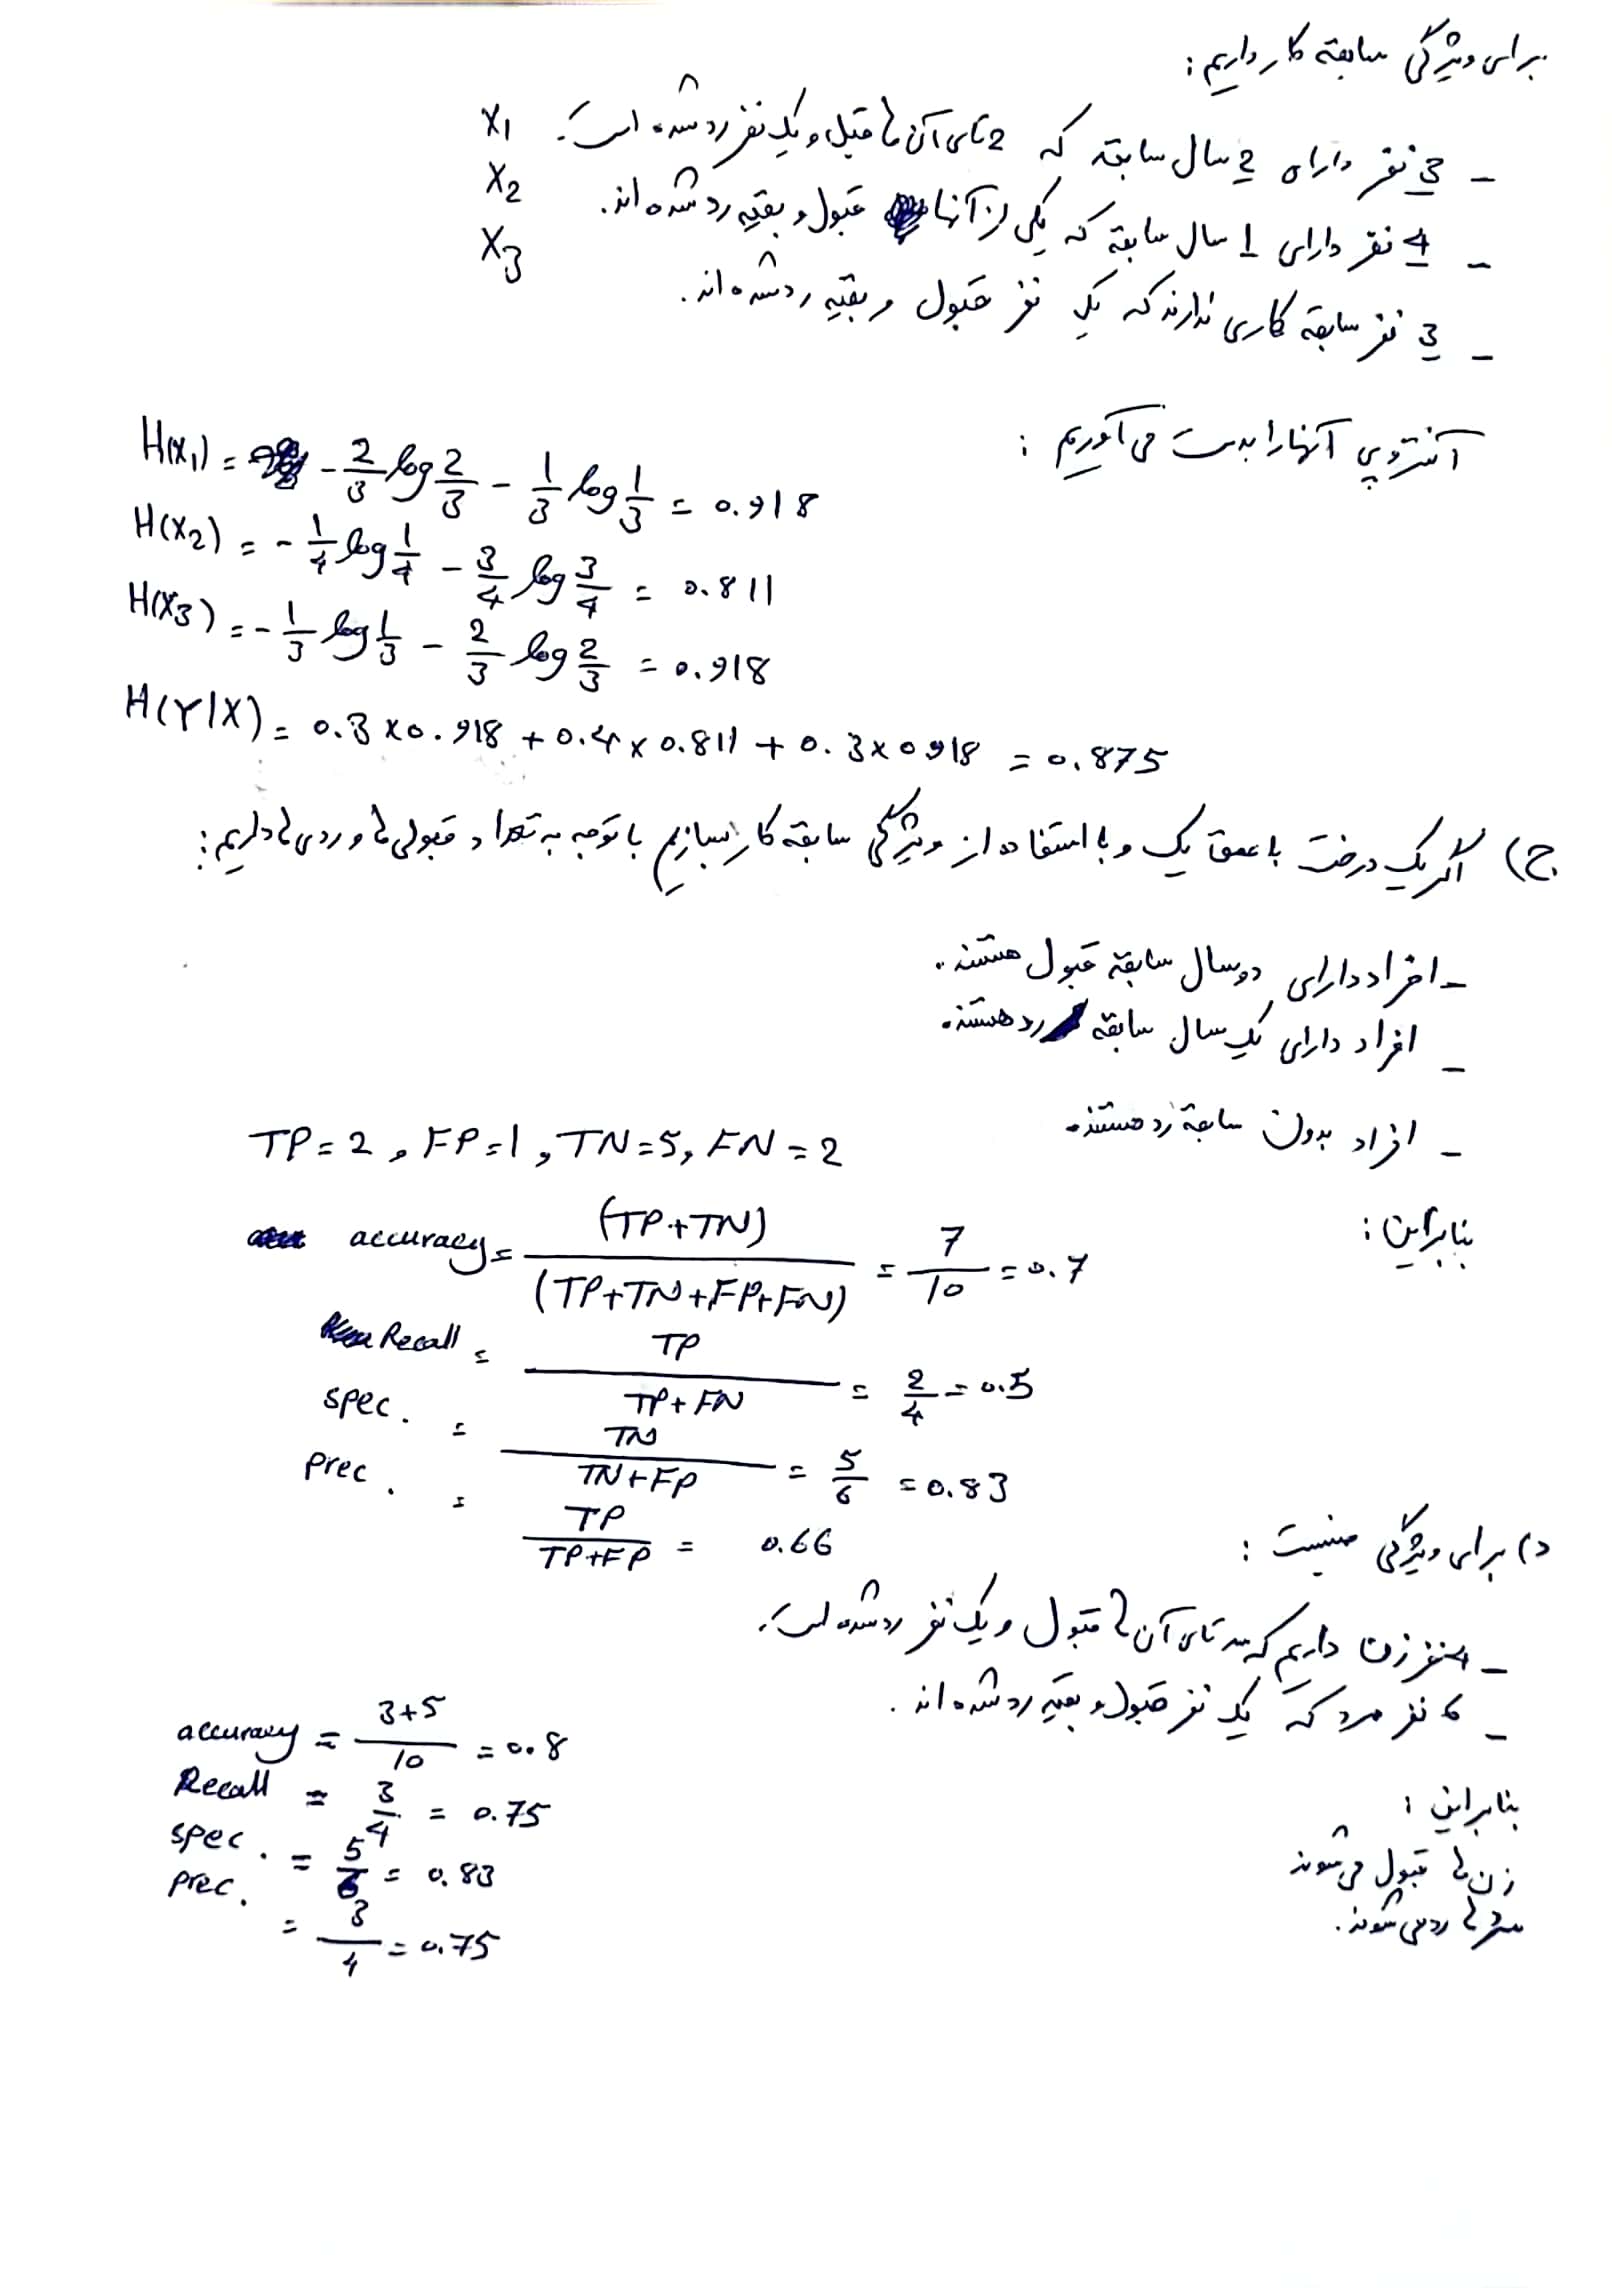 برای ویژگی سابقه کار داریم:
- 3 نفر دارای 2 سال سابقه که 2 تای آن ها قبول و یک نفر رد شده است. X1
- 4 نفر دارای 1 سال سابقه که یکی از آنها قبول و بقیه رد شده اند. X2
- 3 نفر سابقه کاری ندارند که یک نفر قبول و بقیه رد شده اند. X3
آنتروپی آنها را بدست می آوریم:
H(X1) = - 2/3 log 2/3 - 1/3 log 1/3 = 0.918
H(X2) = - 1/4 log 1/4 - 3/4 log 3/4 = 0.811
H(X3) = - 1/3 log 1/3 - 2/3 log 2/3 = 0.918
H(Y|X) = 0.3 x 0.918 + 0.4 x 0.811 + 0.3 x 0918 = 0.875
ج) اگر یک درخت با عمق یک و با استفاده از ویژگی سابقه کار بسازیم با توجه به تعداد قبولی ها و ردی ها داریم:
- افراد دارای دو سال سابقه قبول هستند.
- افراد دارای یک سال سابقه رد هستند.
- افراد بدون سابقه رد هستند.
TP = 2 , FP = 1 , TN = 5 , FN = 2
بنابراین:
accuracy = (TP + TN) / (TP + TN + FP + FN) = 7/10 = 0.7
Recall = TP / TP + FN = 2/4 = 0.5
spec. = TN / TN + FP = 5/6 = 0.83
prec. = TP / TP + FP = 0.66
د) برای ویژگی جنسیت:
- 4 نفر زن داریم که سه تای آن ها قبول و یک نفر رد شده است.
- 6 نفر مرد که یک نفر قبول و بقیه رد شده اند.
بنابراین:
زن ها قبول می شوند
مرد ها رد می شوند.
accuracy = 3+5 / 10 = 0.8
Recall = 3/4 = 0.75
spec. = 5/6 = 0.83
prec. = 3/4 = 0.75